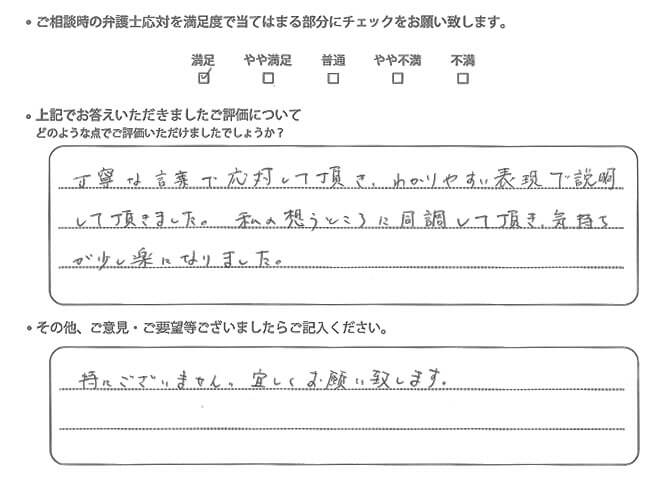 • ご相談時の弁護士応対を満足度で当てはまる部分にチェックをお願い致します。
満足 やや満足 普通 やや不満 不満
☑ □ □ □ □
• 上記でお答えいただきましたご評価について
どのような点でご評価いただけましたでしょうか？
丁寧な言葉で応対して頂き、わかりやすい表現で説明
して頂きました。私の想うところに同調して頂き、気持ち
が少し楽になりました。
• その他、ご意見・ご要望等ございましたらご記入ください。
特にございません。宜しくお願い致します。